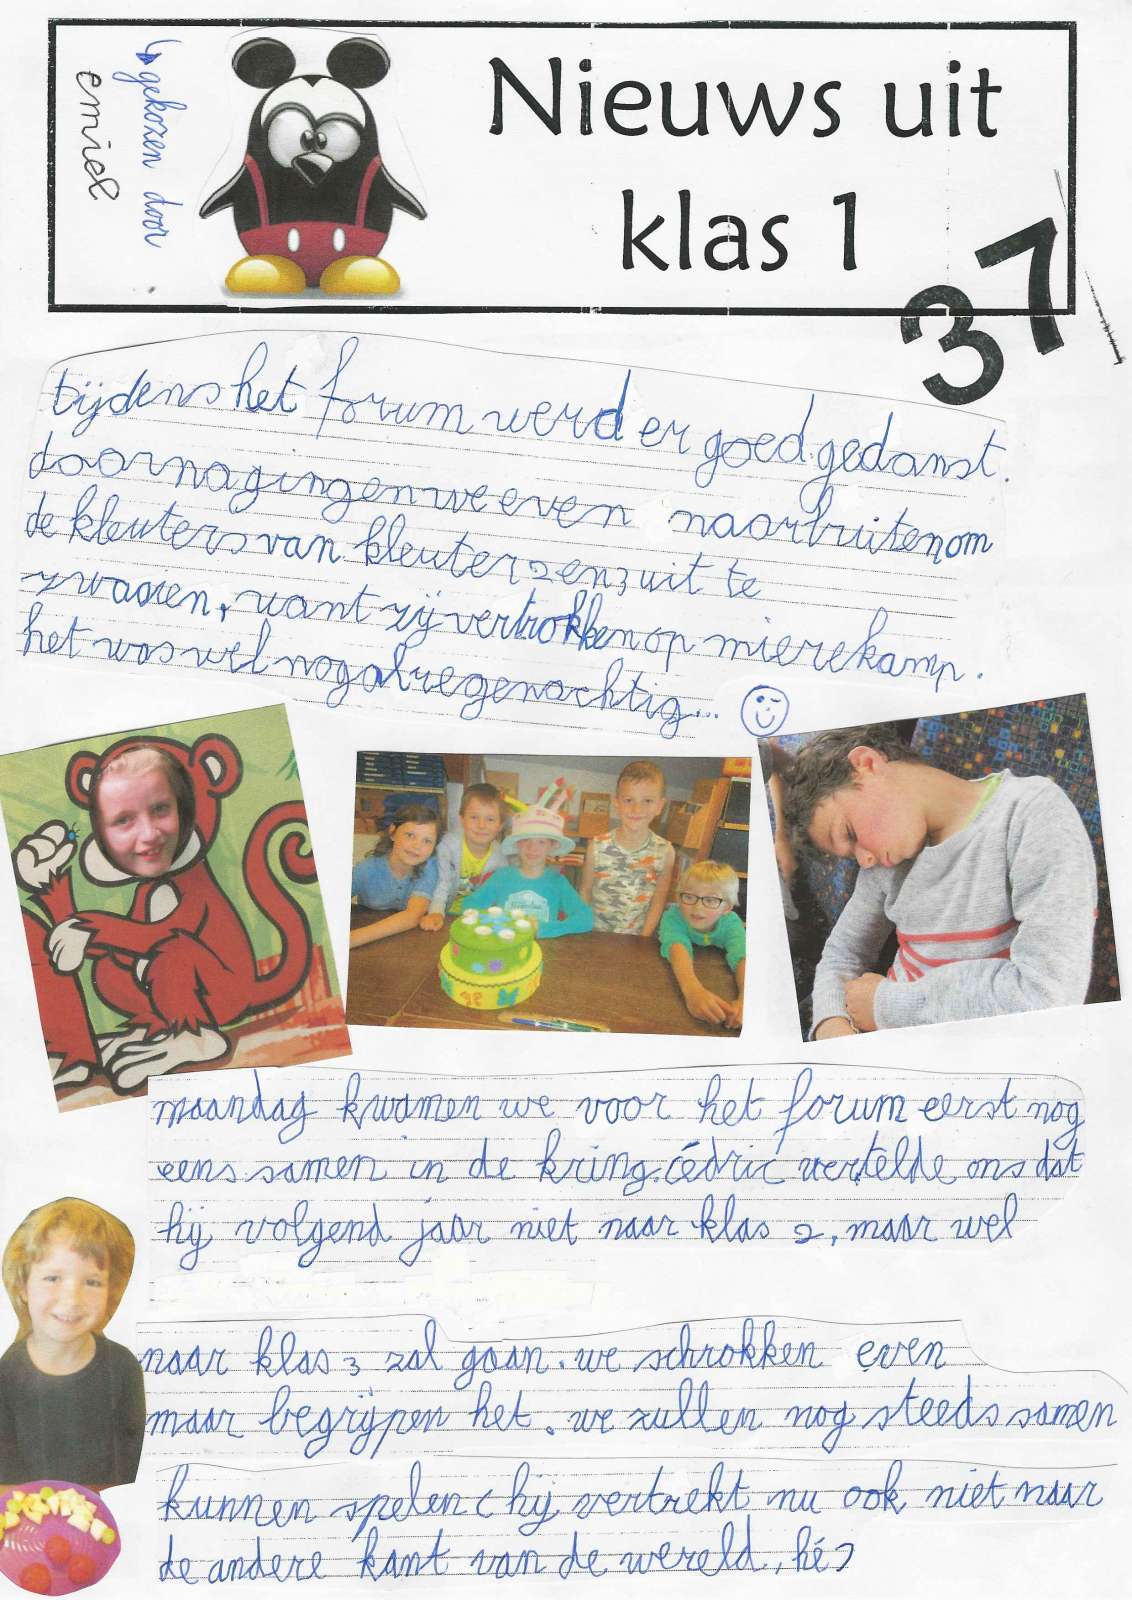 ↳ gekozen door
emiel
Nieuws uit
klas 1
37
tijdens het forum werd er goed gedanst.
daarna gingen we even naar buiten om
de kleuters van kleuter 2 en 3 uit te
zwaaien, want zij vertrokken op mierekamp.
het was wel nogal regenachtig...
maandag kwamen we voor het forum eerst nog
eens samen in de kring. cédric vertelde ons dat
hij volgend jaar niet naar klas 2, maar wel
naar klas 3 zal gaan. we schrokken even
maar begrijpen het. we zullen nog steeds samen
kunnen spelen (hij vertrekt nu ook niet naar
de andere kant van de wereld, hé)